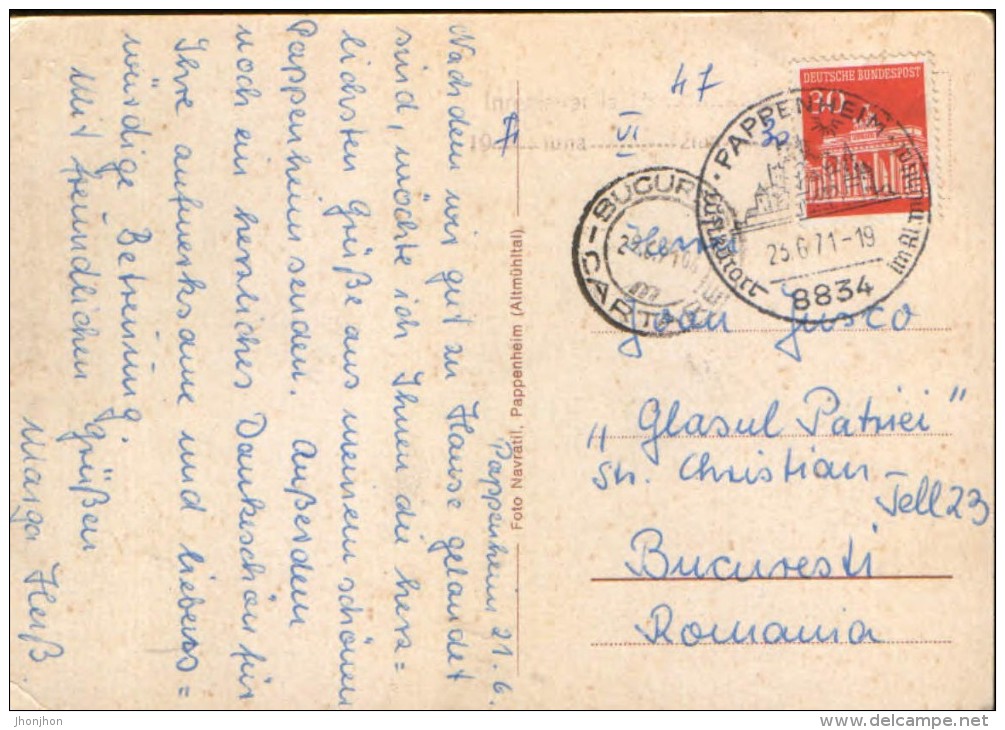 Pappenheim 21.6.
Nachdem wir gut zu Hause gelandet
sind, möchte ich Ihnen die herz=
lichsten Grüße aus meinem schönen
Pappenheim senden. Außerdem
noch ein herzliches Dankeschön für
Ihre aufmerksame und liebens=
würdige Betreuung.
Mit freundlichen
Grüßen
Marga Heiß
Foto Navratil, Pappenheim (Altmühltal)
47
VI
30
DEUTSCHE BUNDESPOST
30
PAPPENHEIM
im Altmühltal
Luftkurort
23.6.71-19
8834
BUCUREȘTI
CARTARE
Herrn
Joan Jusco
„Glasul Patriei"
Str. Christian-
Tell 23
Bucuresti
Romania
jhonjhon
www.delcampe.net